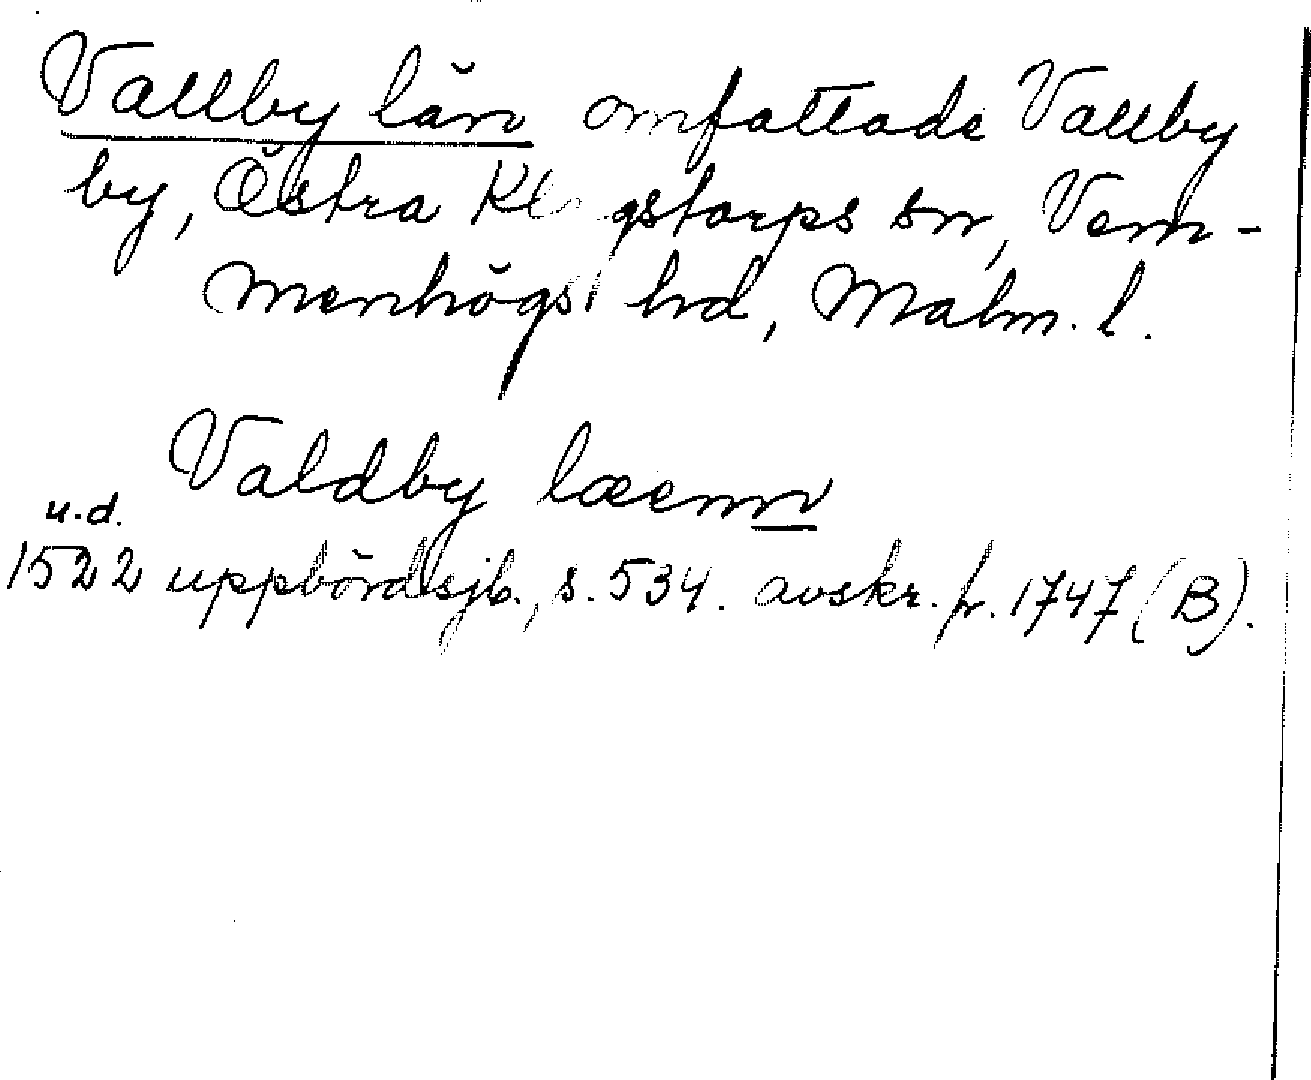 Vallby län omfattade Vallby
by, Östra Klagstorps sn, Vem-
menhögs hd, Malm. l.
Valdby læenn
u.d.
1522 uppbördsjb., s. 534. avskr. fr. 1747 (B).